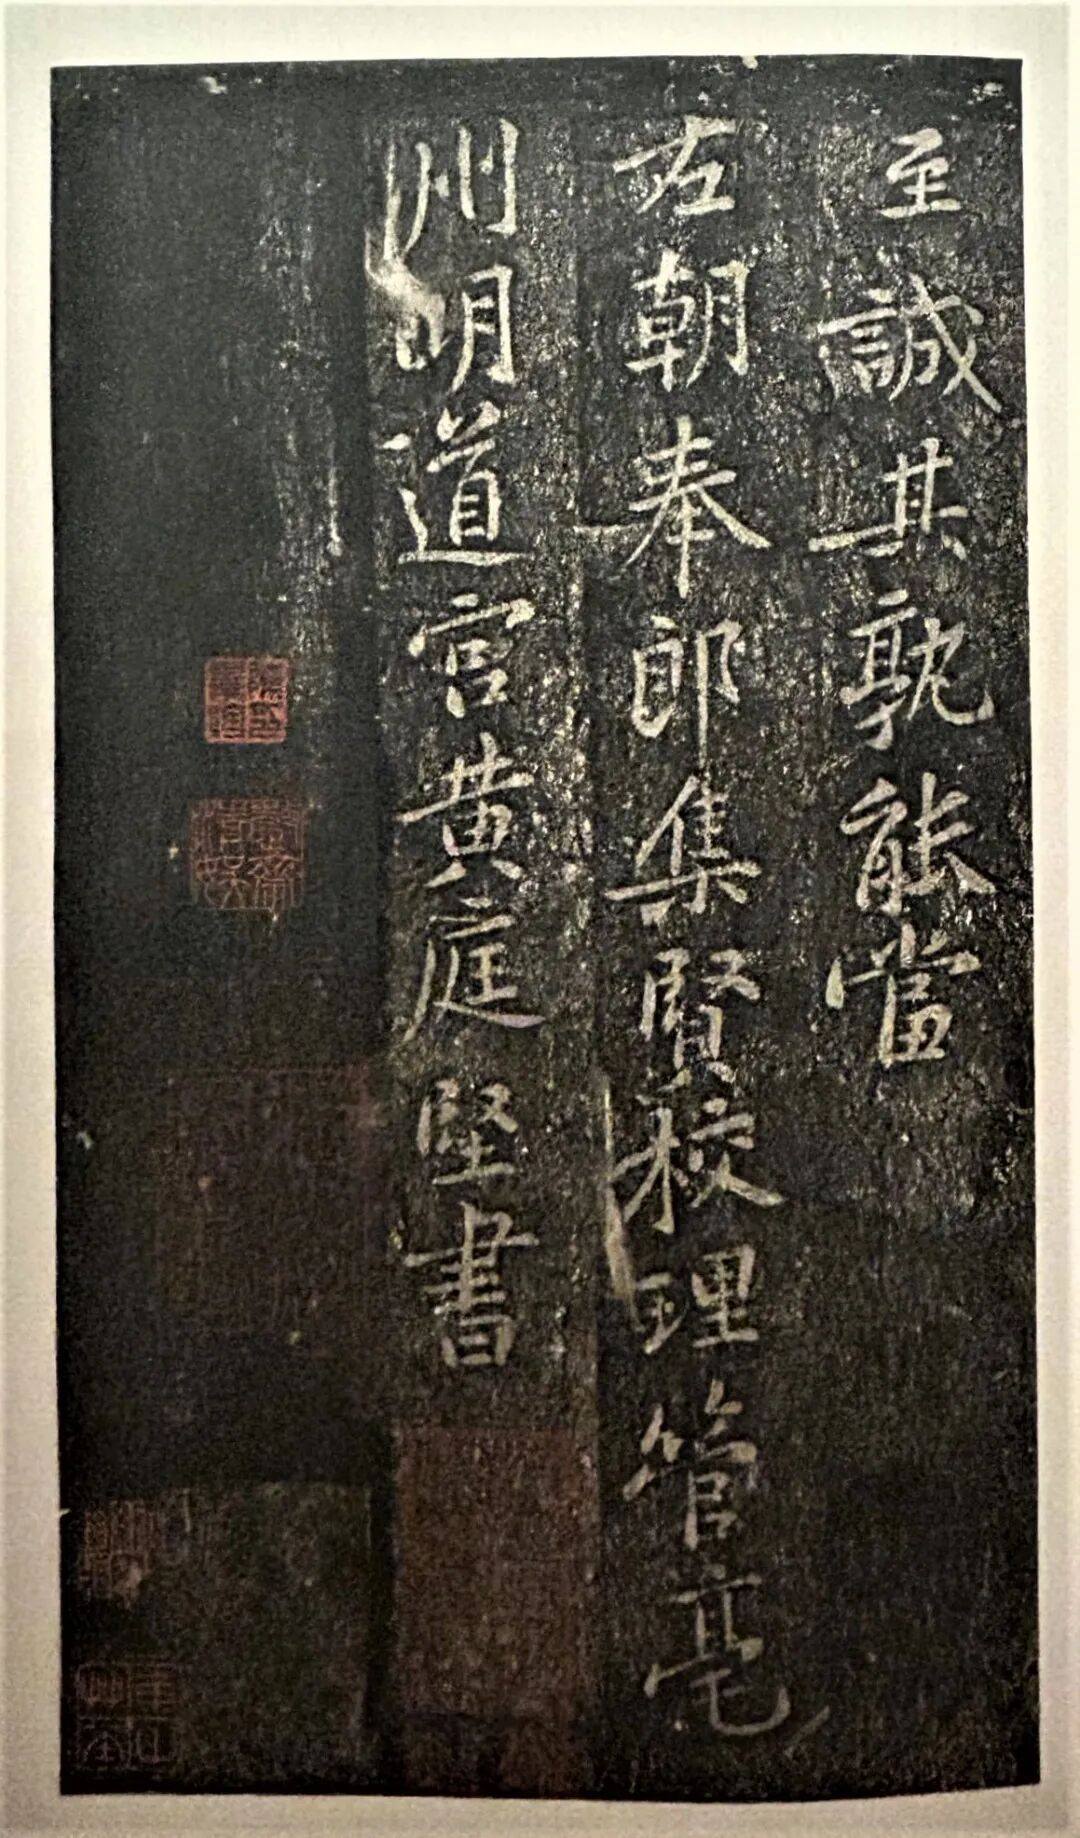 至誠其孰能當
左朝奉郎集賢校理管亳
州明道宮黄庭堅書